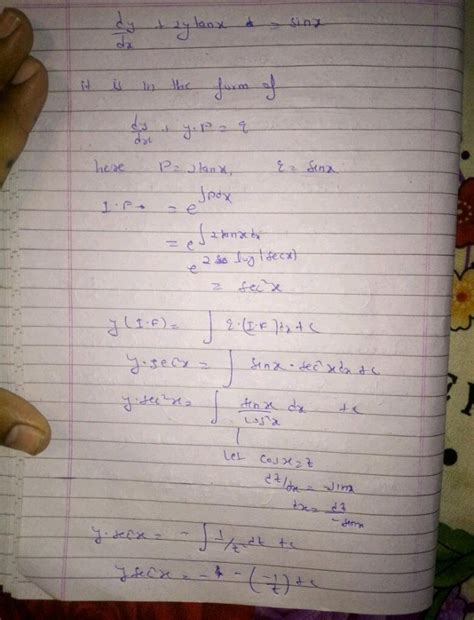 dy/dx + 2y tanx = sinx
it is in the form of
dy/dx + y.P = q
here P = 2tanx, q = sinx
I.F → = e^∫Pdx
= e^∫2tanx dx
e^2 log|secx|
= sec²x
y(I.F) = ∫ q.(I.F)dx + c
y.sec²x = ∫ sinx . sec²x dx + c
y.sec²x = ∫ sinx/cos²x dx + c
Let cosx = z
dz/dx = -sinx
dx = dz/-sinx
y.sec²x = - ∫ 1/z² dz + c
y sec²x = - (-1/z) + c